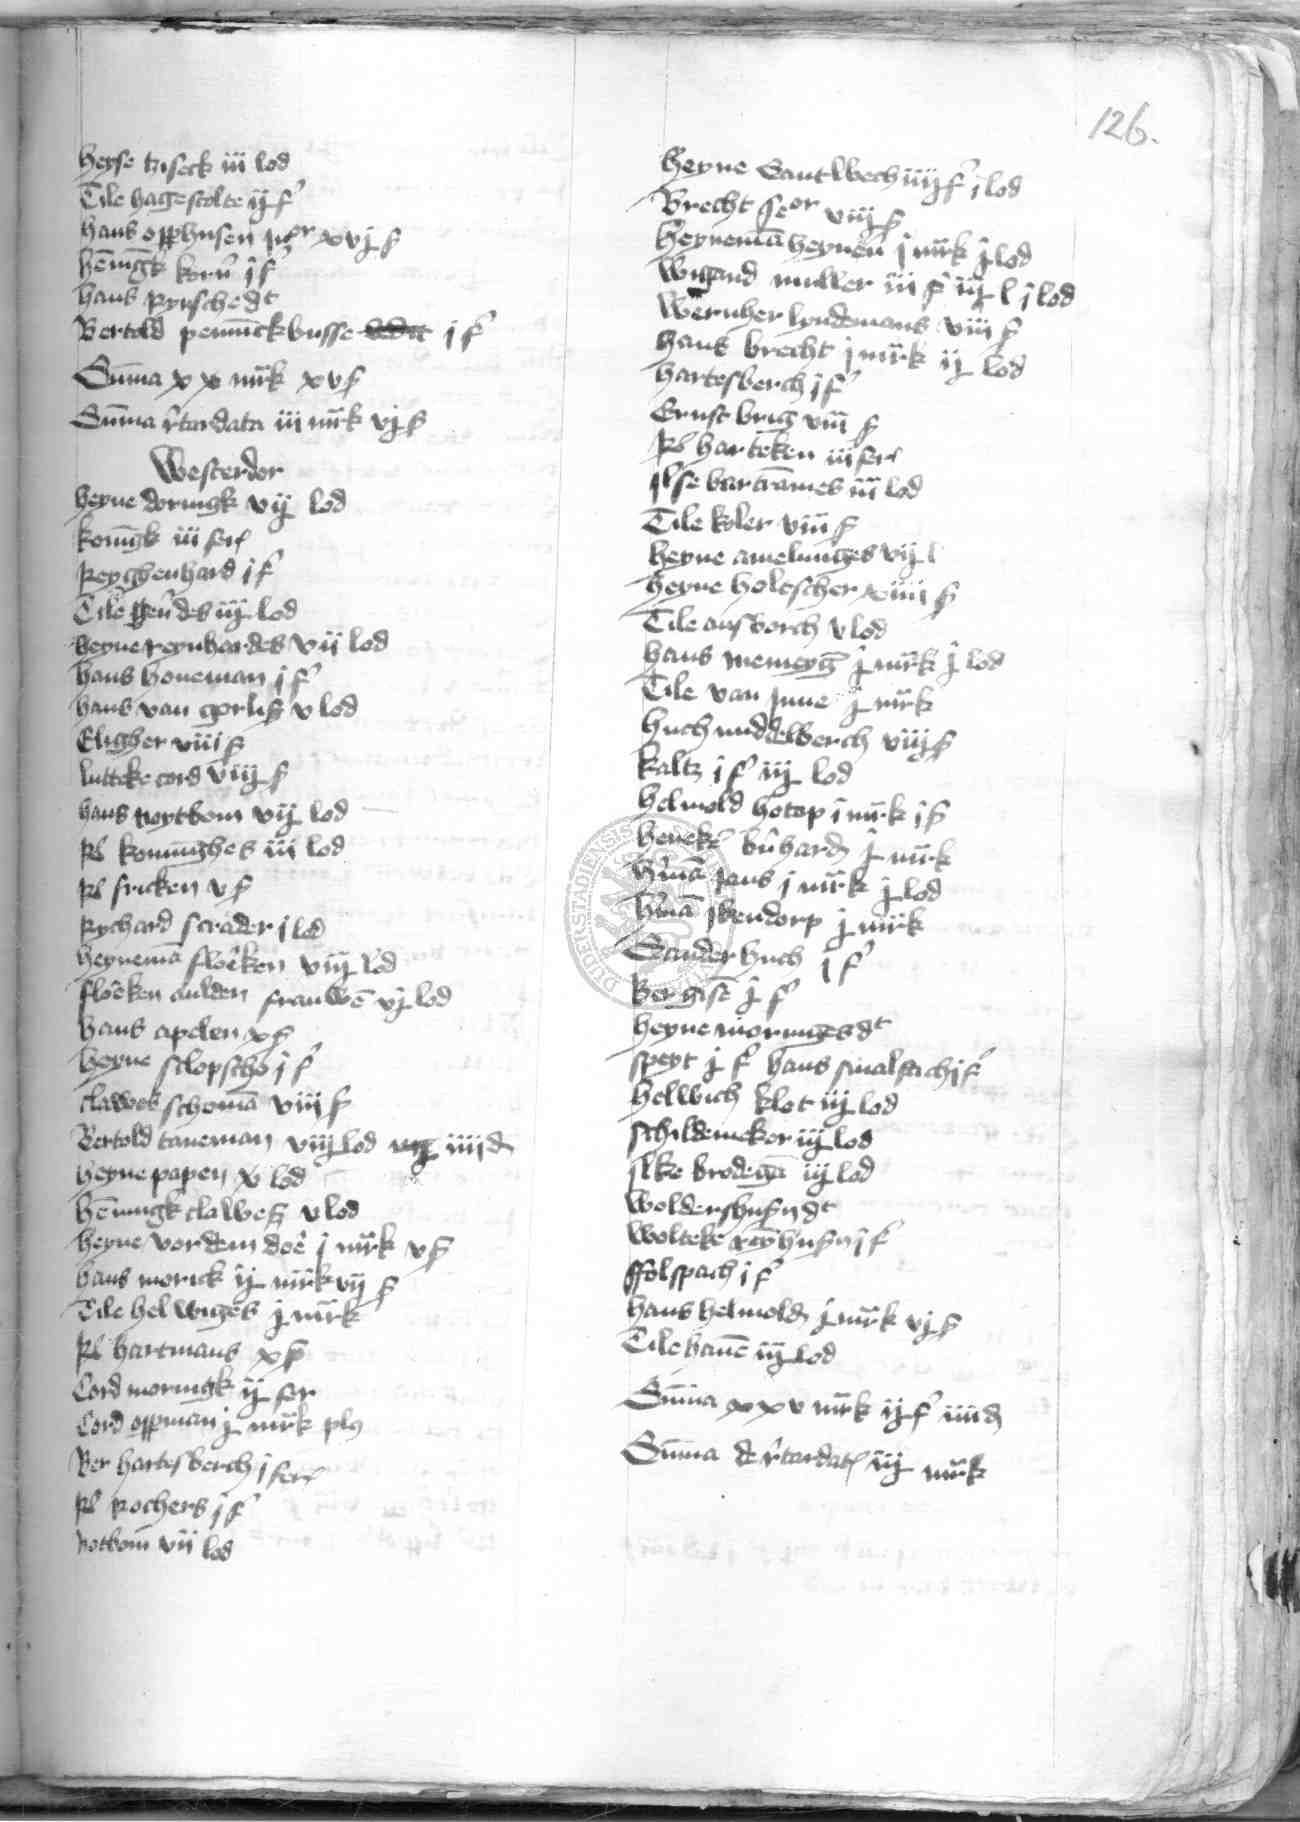 126.
heyse tziseck iii lod
Tile hagestolte ij f
hans opphusen pcor xvj ß
hēnīgk korn̄ j f
hans Ryrschedt
Bertold penīckbusse j f
Sūma xx mrk xv ß
Sūma rtardata iii mrk vj ß
Westerdor
heyne doringk vij lod
konīgk iii fer
Reyghenhard j f
Tile iij lod
heyne reynhardes vii lod
hans honeman j f
hans van gorliß v lod
Eligher viii ß
lutteke cord viij ß
hans noytbom vij lod
Rel konīghes iii lod
Rel fricken v ß
Rychard scrader j lod
heynemā floeken viij lod
floeken aulden frauwē vj lod
hans apelen x ß
heyne sclopscho j f
clawes schomā viij ß
Bertold taneman viij lod iiij d
heyne papen x lod
hēnīngk clawes v lod
heyne vor dem doe j mrk v ß
hans morick ij mrk vij ß
Tile helwiges j mrk
Rel hartmans x ß
Cord moringk ij fer
Cord oppman j mrk
Ber hartesberch j fer
Rel Rochers j f
notbom vii lod
heyne Santwech iiij f j lod
Brecht seor viij ß
heynemā heynen j mrk j lod
Wigand muller iii f iij l j lod
Wernher lyndemans viii ß
hans brecht j mrk ij lod
hartesberch j f
Ernst brug viii ß
Rel harteken iii fer
Ilse bartrames iii lod
Tile koler viii ß
heyne amelunges vij l
heyne holtscher xiiii ß
Tile ausborch v lod
hans memeyg j mrk j lod
Tile van June j mrk
huch middelberch viij ß
kaltz j f iij lod
helmold hotop j mrk j ß
heneke būhard j mrk
hmā pans j mrk j lod
hmā ikendorp j mrk
Sander huch j f
Ber gisē j f
heyne moringes dt
speyt j f hans smalfach j f
hellwich klot iij lod
schildemeker iij lod
ilke brodegā iij lod
woldershusn dt
wolteke j f
ffolspach j f
hans helmold j mrk vj ß
Tile hauē iij lod
Sūma xxv mrk ij f iiii d
Sūma de rtardat iij mrk
DUDERSTADIENSIS